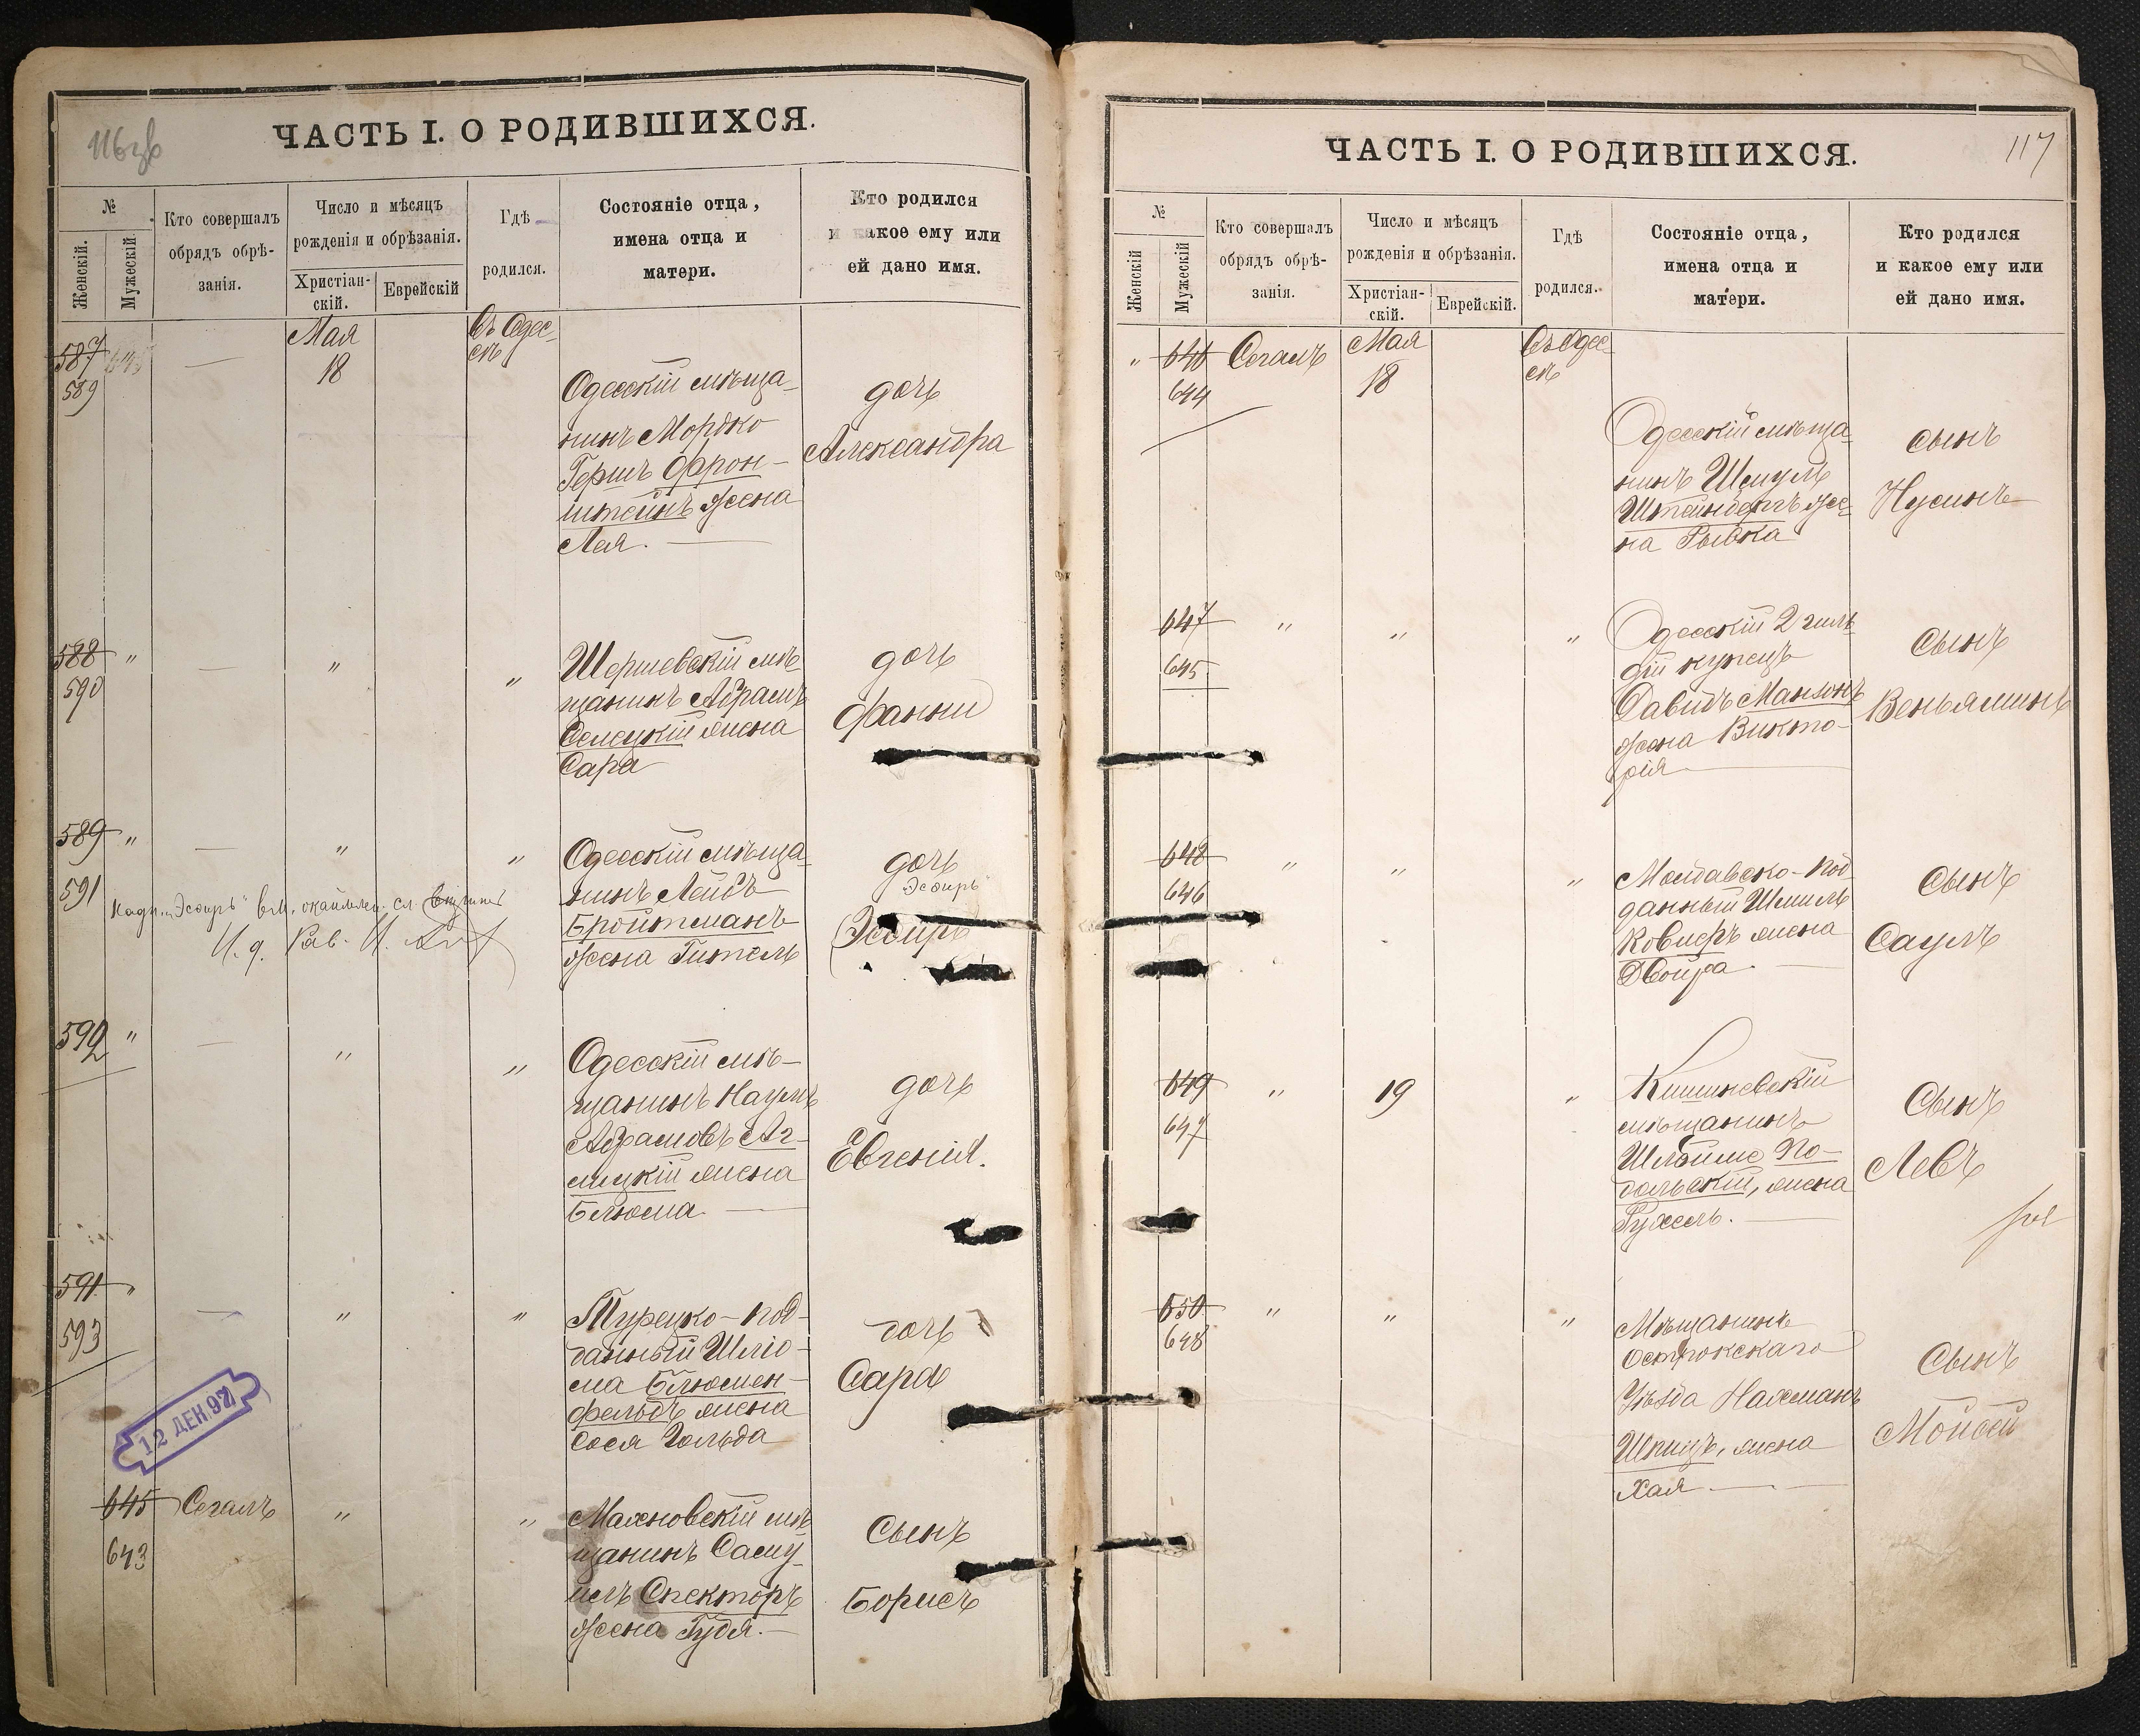 116 об
ЧАСТЬ I. О РОДИВШИХСЯ.
№
Женскій.
Мужескій.
Кто совершалъ
обрядъ обрѣ-
занія.
Число и мѣсяцъ
рожденія и обрѣзанія.
Христіан-
скій.
Еврейскій
Гдѣ
родился.
Состояніе отца,
имена отца и
матери.
Кто родился
и какое ему или
ей дано имя.
587 645 — Мая въ Одес-
589 18 сѣ
Одесскій мѣща-
нинъ Мордко
Гершъ Фрон-
штейнъ жена
Лея. —
дочь
Александра
588 " — " "
590
Шершевскій мѣ-
щанинъ Абрамъ
Селецкій жена
Сара
дочь
Фанни
589 " — " "
591
Одесскій мѣща-
нинъ Лейбъ
Бройтманъ
жена Гитель
дочь
Эсѳирь
(Эсѳирь
Надп. „Эсѳирь" вм.
И. д. Рав.
590 " — " "
2
Одесскій мѣ-
щанинъ Наумъ
Абрамовъ Аг-
лицкій жена
Блюма —
дочь
Евгенія.
591 " — " "
593
Турецко-под-
данный Шлio-
ма Блюмен-
фельдъ жена
Сося Гольда
дочь
Сара
12 ДЕК. 97
645 Сегалъ " "
643
Махновскій мѣ
щанинъ Саму-
илъ Спекторъ
жена Гудя. —
Сынъ
Борисъ
117
ЧАСТЬ I. О РОДИВШИХСЯ.
№
Женскій
Мужескій
Кто совершалъ
обрядъ обрѣ-
занія.
Число и мѣсяцъ
рожденія и обрѣзанія.
Христіан-
скій.
Еврейскій.
Гдѣ
родился.
Состояніе отца,
имена отца и
матери.
Кто родился
и какое ему или
ей дано имя.
" 646 Сегалъ Мая Въ Одес-
644 18 сѣ
Одесскій мѣща-
нинъ Шмулъ
Штейнбергъ же-
на Рывка
сынъ
Нусинъ
647 " " "
645
Одесскій 2 гиль-
дій купецъ
Давидъ Мансонъ
жена Викто-
рія —
Сынъ
Веньяминъ
648 " " "
646
Молдавско-Под-
данный Шмиль
Ковнеръ жена
Двойра. —
Сынъ
Саулъ
649 " 19 "
647
Кишиневскій
мѣщанинъ
Шлойме По-
дольскій, жена
Рухель. —
Сынъ
Левъ
650 " " "
648
Мѣщанинъ
Острожскаго
Уѣзда Нахманъ
Шпицъ, жена
Хая —
Сынъ
Мойсей